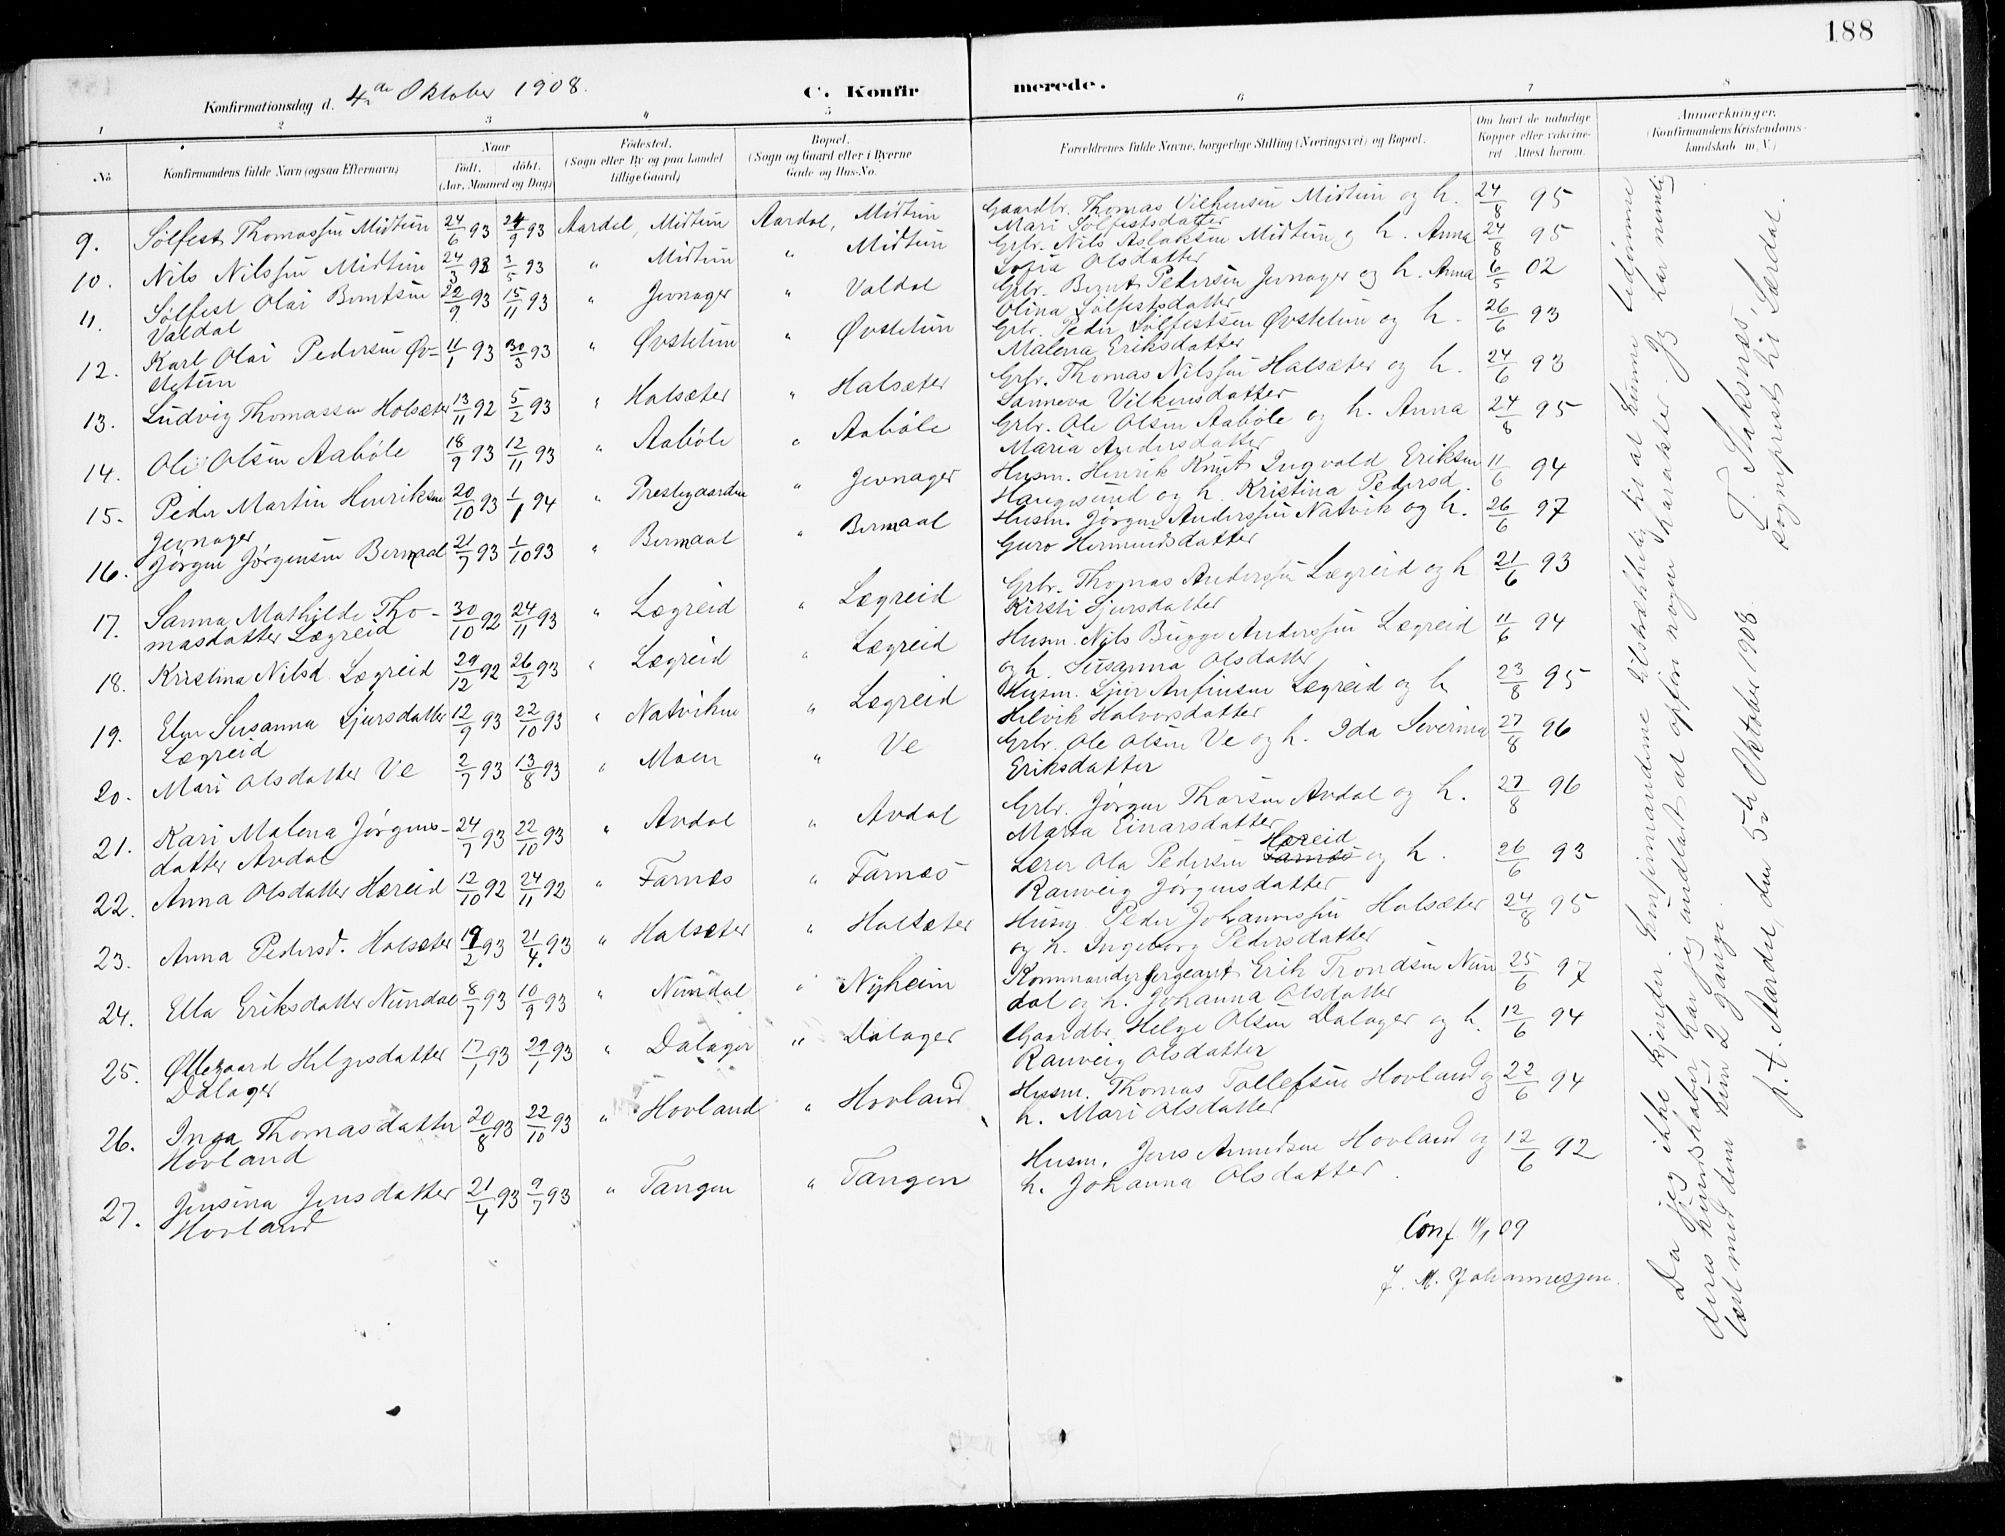 188
Konfirmationsdag d. 4de Oktober 1908. C. Konfirmerede.
1 2 3 4 5 6 7 8
No Konfirmandens fulde Navn (ogsaa Efternavn) Naar født. døbt. (Aar, Maaned og Dag) Fødested. (Sogn eller By og paa Landet tillige Gaard) Bopæl. (Sogn og Gaard eller i Byerne Gade og Hus-No. Forældrenes fulde Navne, borgerlige Stilling (Næringsvei) og Bopæl. Om havt de naturlige Kopper eller vaccineret Attest herom. Anmerkninger. (Konfirmandens Kristendomskundskab m. V.)
9. Sølfest Thomassen Midtun 24/6 93 24/9 93 Aardal, Midtun Aardal, Midtun Gaardbr. Thomas Vilhensen Midtun og h. 24/8 95
Mari Sølfestsdatter
10. Nils Nilssen Midtun 24/3 93 3/5 93 " Midtun " Midtun Grbr. Nils Aslaksen Midtun og h. Anna 24/8 95
Sofia Olsdatter
11. Sølfest Olai Berntsen 22/9 93 15/11 93 " Jevnager " Valdal Grbr. Bernt Pedersen Jevnager og h. Anna 6/5 02
Valdal Olina Sølfestsdatter
12. Karl Olai Pedersen Øv= 11/1 93 30/3 93 " Øvstetun " Øvstetun Grbr. Peder Sølfestsen Øvstetun og h. 26/6 93
stetun Malena Eriksdatter
13. Ludvig Thomassen Holsæter 13/11 92 5/2 93 " Holsæter " Halsæter Grbr. Thomas Nilssen Halsæter og h. 24/6 93
Sanneva Vilkensdatter
14. Ole Olsen Aabøle 18/9 93 12/11 93 " Aabøle " Aabøle Grbr. Ole Olsen Aabøle og h. Anna 24/8 95
Maria Andersdatter
15. Peder Martin Henriksen 20/10 93 1/1 94 " Prestegaarden " Jevnager Husm. Henrik Knut Ingvald Eriksen 11/6 94
Jevnager Haugesund og h. Kristina Pedersd.
16. Jørgen Jørgensen Bermaal 21/7 93 1/10 93 " Bermaal " Bermaal Husm. Jørgen Anderssen Natvik og h. 26/6 97
Guro Hermundsdatter
17. Sanna Mathilde Tho- 30/10 92 24/11 93 " Lægreid " Lægreid Grbr. Thomas Anderssen Lægreid og h 21/6 93
masdatter Lægreid Kirsti Sjursdatter
18. Kristina Nilsd. Lægreid 29/12 92 26/2 93 " Lægreid " Lægreid Husm. Nils Bugge Anderssen Lægreid 11/6 94
og h. Susanna Olsdatter
19. Elen Susanna Sjursdatter 12/9 93 22/10 93 " Natviken " Lægreid Husm. Sjur Anfinsen Lægreid og h 23/8 95
Lægreid Helvik Halvorsdatter
20. Mari Olsdatter Ve 2/7 93 13/8 93 " Moen " Ve Grbr. Ole Olsen Ve og h. Ida Severina 27/8 96
Eriksdatter
21. Kari Malena Jørgens- 24/7 93 22/10 93 " Avdal " Avdal Grbr. Jørgen Thorsen Avdal og h. 27/8 96
datter Avdal Marta Einarsdatter
22. Anna Olsdatter Hæreid 12/10 92 24/11 92 " Farnæs " Farnæs Lærer Ola Pedersen Hæreid Farnæs og h. 26/6 93
Ranveig Jørgensdatter
23. Anna Pedersd. Holsæter 19/2 93 21/4 93 " Halsæter " Holsæter Husm. Peder Johannessen Holsæter 24/8 95
og h. Ingeborg Pedersdatter
24. Ella Eriksdatter Nundal 8/7 93 10/9 93 " Nundal " Nyheim Kommandersergeant Erik Trondsen Nun 25/6 97
dal og h. Johanna Olsdatter
25. Øllegaard Helgesdatter 17/1 93 29/1 93 " Dalager " Dalager Gaardbr. Helge Olsen Dalager og h. 12/6 94
Dalager Ranveig Olsdatter
26. Inga Thomasdatter 20/8 93 22/10 93 " Hovland " Hovland Husm. Thomas Tollefsen Hovland og 22/6 94
Hovland h. Mari Olsdatter
27. Jensina Jensdatter 21/4 93 9/7 93 " Tangen " Tangen Husm. Jens Amundsen Hovland og 12/6 92
Hovland h. Johanna Olsdatter.
Conf 11/1 09
J. M. Johannessen
Da jeg ikke kjender konfirmanderne tilstrækkelig til at kunne bedømme
deres kundskaber, har jeg undladt at opføre nogen karakter. Jeg har nemlig
læst med dem kun 2 gange.
p. t. Aardal, den 5te Oktober 1908. T. Saksnes,
sogneprest til Lærdal.